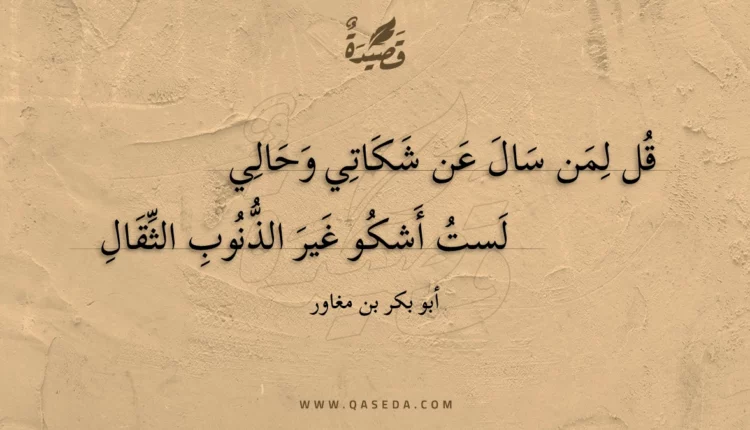 قَصِيدَةٌ
قُل لِمَن سَالَ عَن شَكَاتِي وَحَالِي
لَستُ أَشكُو غَيرَ الذُّنُوبِ الثِّقَالِ
أبو بكر بن مغاور
WWW.QASEDA.COM